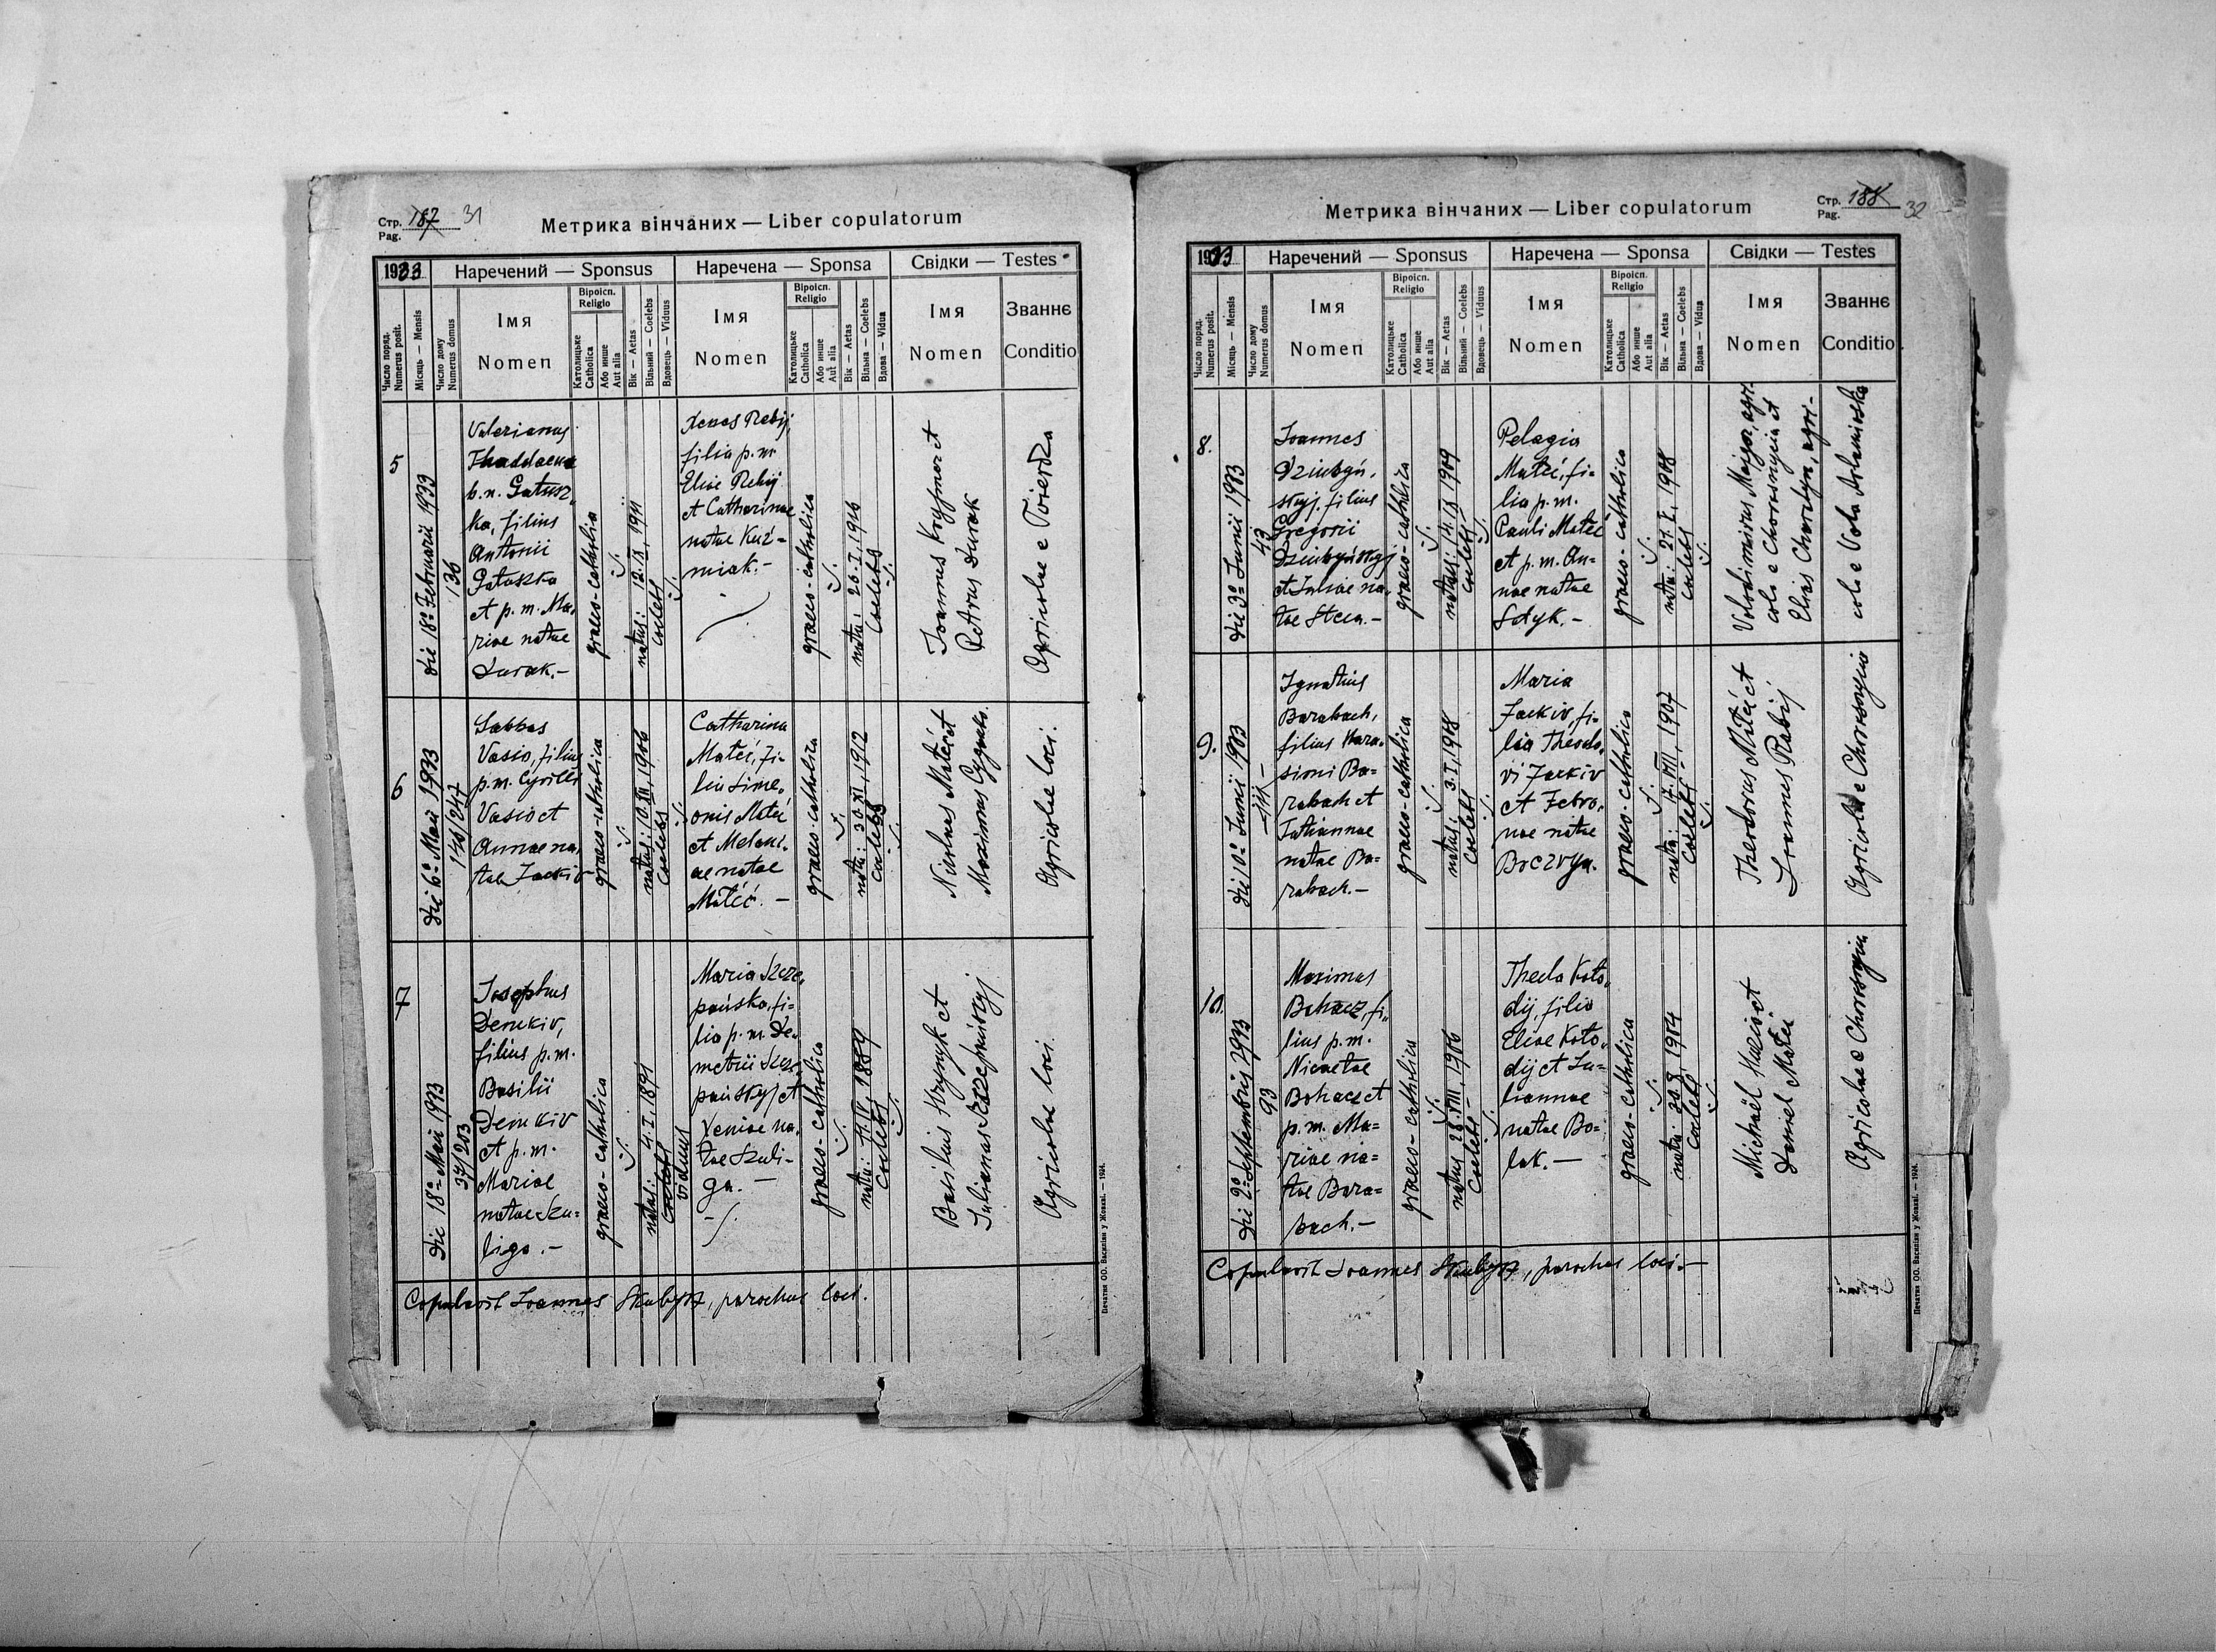 Стр.
Pag. 187 31
Метрика вінчаних — Liber copulatorum
1933
Наречений — Sponsus
Наречена — Sponsa
Свідки — Testes
Число поряд.
Numerus posit.
Місяць — Mensis
Число дому
Numerus domus
Імя
Nomen
Віроісп.
Religio
Католицьке
Catholica
Або инше
Aut alia
Вік — Aetas
Вільний — Coelebs
Вдовець — Viduus
Імя
Nomen
Віроісп.
Religio
Католицьке
Catholica
Або инше
Aut alia
Вік — Aetas
Вільна — Coelebs
Вдова — Vidua
Імя
Nomen
Званнє
Conditio
5
die 18ᵃ Februarii 1933
136
Valerianus
Thaddaeus
b. n. Gatusz-
ka, filius
Antonii
Gatuszka
et p. m. Ma-
riae natae
Durak.-
graeco-catholica
natus: 12. IX. 1911
coelebs
Xenes Rebij,
filia p. m.
Eliae Rebij
et Catharinae
natae Kuź-
miak.-
graeco-catholica
nata: 26. I, 1916
coelebs
Joannes et
Petrus Durak
Agricolae e
6
die 6ᵃ Maii 1933
148/247
Sabbas
Vasio, filius
p. m. Cyrilli
Vasio et
Annae na-
tae Jackiv
graeco-catholica
natus: 10. III, 1906
coelebs
Catharina
Mateí, fi-
lia Sime-
onis Mateí
et Melani-
ae natae
Mateí. -
graeco-catholica
nata: 30. XI, 1912
coelebs
Nicolaus Mateí et
Maximus
Agricolae loci.
7
die 18ᵃ Maii 1933
37/203
Josephus
Denkiv,
filius p. m.
Basilii
Denkiv
et p. m.
Mariae
natae Szu-
liga.-
graeco-catholica
natus: 4. I, 1891
viduus
Maria Szcze-
pańska, fi-
lia p. m. De-
metrii Szcze-
pańskyj et
Xeniae na-
tae Szuli-
ga. -
graeco-catholica
nata: 11. IV, 1889
coelebs
Basilius Hrynyk et
Julianus Szczepańskyj
Agricolae loci
Copulavit Joannes Skabysz, parochus loci.
Печатня ОО. Василіян у Жовкві. — 1924.
Стр.
Pag. 188 32
Метрика вінчаних — Liber copulatorum
1933
Наречений — Sponsus
Наречена — Sponsa
Свідки — Testes
Число поряд.
Numerus posit.
Місяць — Mensis
Число дому
Numerus domus
Імя
Nomen
Віроісп.
Religio
Католицьке
Catholica
Або инше
Aut alia
Вік — Aetas
Вільний — Coelebs
Вдовець — Viduus
Імя
Nomen
Віроісп.
Religio
Католицьке
Catholica
Або инше
Aut alia
Вік — Aetas
Вільна — Coelebs
Вдова — Vidua
Імя
Nomen
Званнє
Conditio
8.
die 3ᵃ Junii 1933
43
Joannes
Dziubyń-
skyj, filius
Gregorii
Dziubyńskyj
et Juliae na-
tae Steca.-
graeco-catholica
natus: 14. IX 1909
coelebs
Pelagia
Mateí, fi-
lia p. m.
Pauli Mateí
et p. m. An-
nae natae
Sotyk.-
graeco-catholica
nata: 27. I, 1908
coelebs
Volodimirus Majgor, agri-
cola e Chorosnycia et
Elias Chordyn, agri-
cola e Vola Arlamivska
9.
die 10ᵃ Junii 1933
Ignatius
Barabach,
filius Hara-
simi Ba-
rabach et
Tatiannae
natae Ba-
rabach.-
graeco-catholica
natus: 3. I, 1908
coelebs
Maria
Jackiv, fi-
lia Theodo-
ri Jackiv
et Febro-
nae natae
Boczvya.
graeco-catholica
nata: 17. VIII, 1907
coelebs
Theodorus Mateí et
Joannes Rabij
Agricolae e Chorosnycia
10.
die 2ᵃ Septembris 1933
93
Maximus
Bohacz, fi-
lius p. m.
Nicaetae
Bohacz et
p. m. Ma-
riae na-
tae Bara-
bach.-
graeco-catholica
natus 28. VIII, 1906
coelebs
Thecla Koto-
dij, filia
Eliae Koto-
dij et Ju-
liannae
natae Bo-
lak.-
graeco-catholica
nata: 20. 8, 1904
coelebs
Michaël et
Daniel Mateí
Agricolae e Chorosnycia
Copulavit Joannes Skabysz, parochus loci.-
Печатня ОО. Василіян у Жовкві. — 1924.